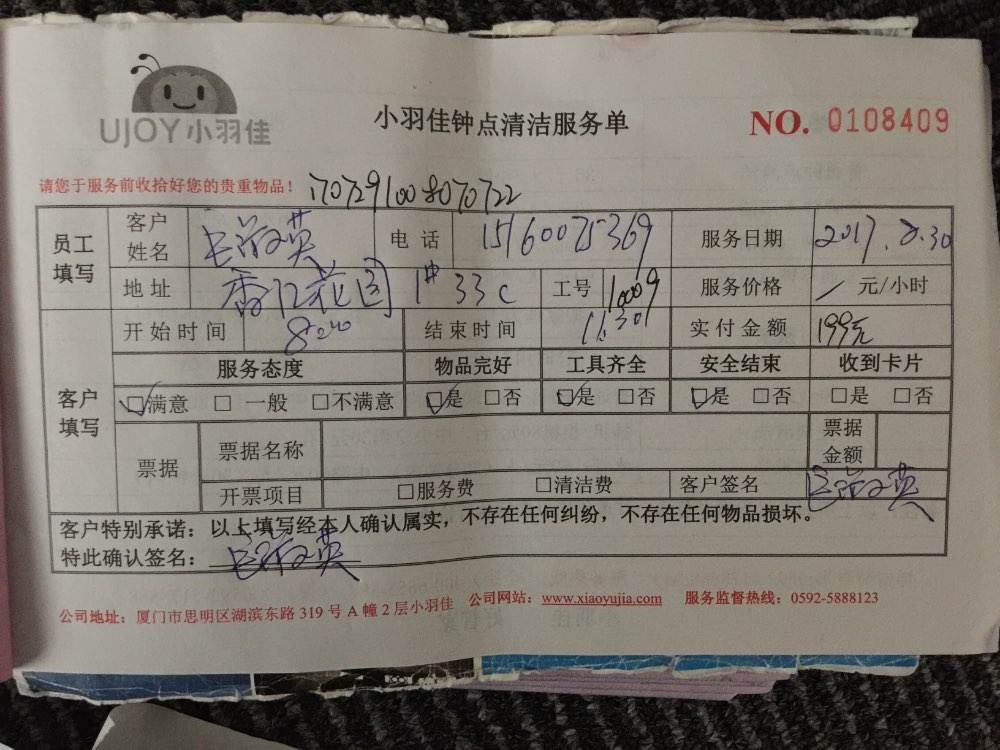 UJOY小羽佳
小羽佳钟点清洁服务单
NO. 0108409
请您于服务前收拾好您的贵重物品！ 1707291008070722
员工填写 客户姓名 电话 15160075369 服务日期 2017.8.30
地址 香江花园 1# 33c 工号 10009 服务价格 / 元/小时
客户填写 开始时间 8:40 结束时间 11:30 实付金额 199元
服务态度 物品完好 工具齐全 安全结束 收到卡片
☑满意 □一般 □不满意 ☑是 □否 ☑是 □否 ☑是 □否 □是 □否
票据 票据名称 票据金额
开票项目 □服务费 □清洁费 客户签名
客户特别承诺：以上填写经本人确认属实，不存在任何纠纷，不存在任何物品损坏。
特此确认签名：
公司地址：厦门市思明区湖滨东路 319 号 A 幢 2 层小羽佳 公司网站：www.xiaoyujia.com 服务监督热线：0592-5888123